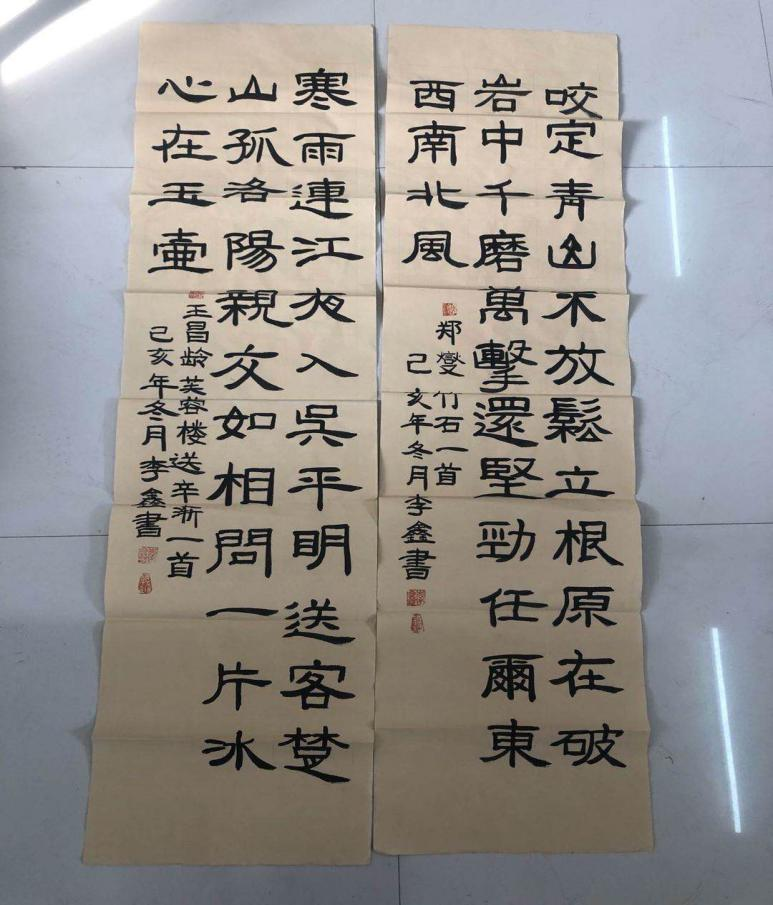 咬定青山不放鬆立根原在破
岩中千磨萬擊還堅勁任爾東
西南北風
郑燮竹石一首
己亥年冬月李鑫書
寒雨連江夜入吴平明送客楚
山孤洛陽親友如相問一片冰
心在玉壷
王昌龄芙蓉楼送辛渐一首
己亥年冬月李鑫書